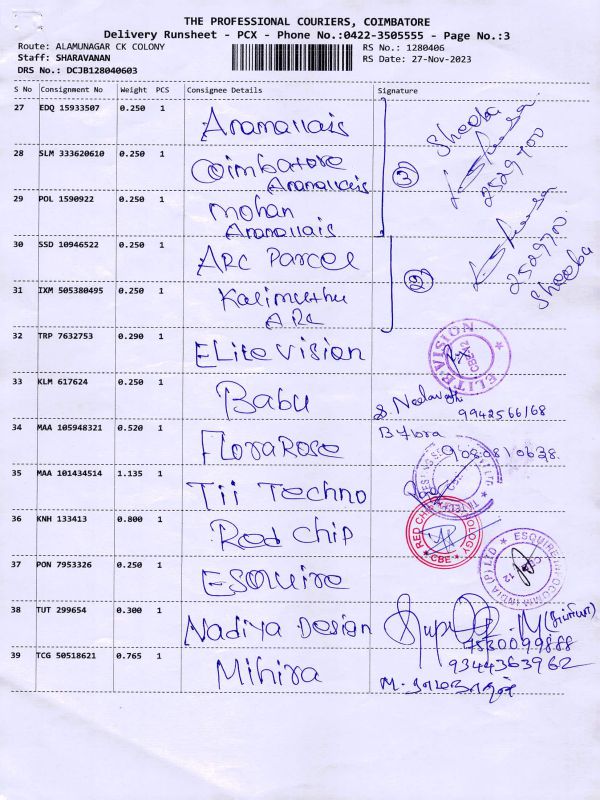 THE PROFESSIONAL COURIERS, COIMBATORE
Delivery Runsheet - PCX - Phone No.:0422-3505555 - Page No.:3
Route: ALAMUNAGAR CK COLONY
RS No.: 1280406
Staff: SHARAVANAN
RS Date: 27-Nov-2023
DRS No.: DCJB128040603
S No Consignment No Weight PCS Consignee Details Signature
27 EDQ 15933507 0.250 1 Anamallais
28 SLM 333620610 0.250 1 Coimbatore
Anamallais
29 POL 1590922 0.250 1 Mohan
Anamallais
③
Sheeba
2529700
30 SSD 10946522 0.250 1 ARC Parcel
31 IXM 505380495 0.250 1 Kalimuthu
ARC
②
2529700
Sheeba
32 TRP 7632753 0.290 1 Elite Vision
ELITE VISION
CBE-12
33 KLM 617624 0.250 1 Babu
S. Neelavathi
9942566168
34 MAA 105948321 0.520 1 FloraRose
35 MAA 101434514 1.135 1 Tii Techno
36 KNH 133413 0.800 1 Red Chip
RED CHIP
CBE
37 PON 7953326 0.250 1 Esquire
ESQUIRE INFOCOMM INDIA (P) LTD
38 TUT 299654 0.300 1 Nadiya Design
7530099888
39 TCG 50518621 0.765 1 Mihira
9344363962